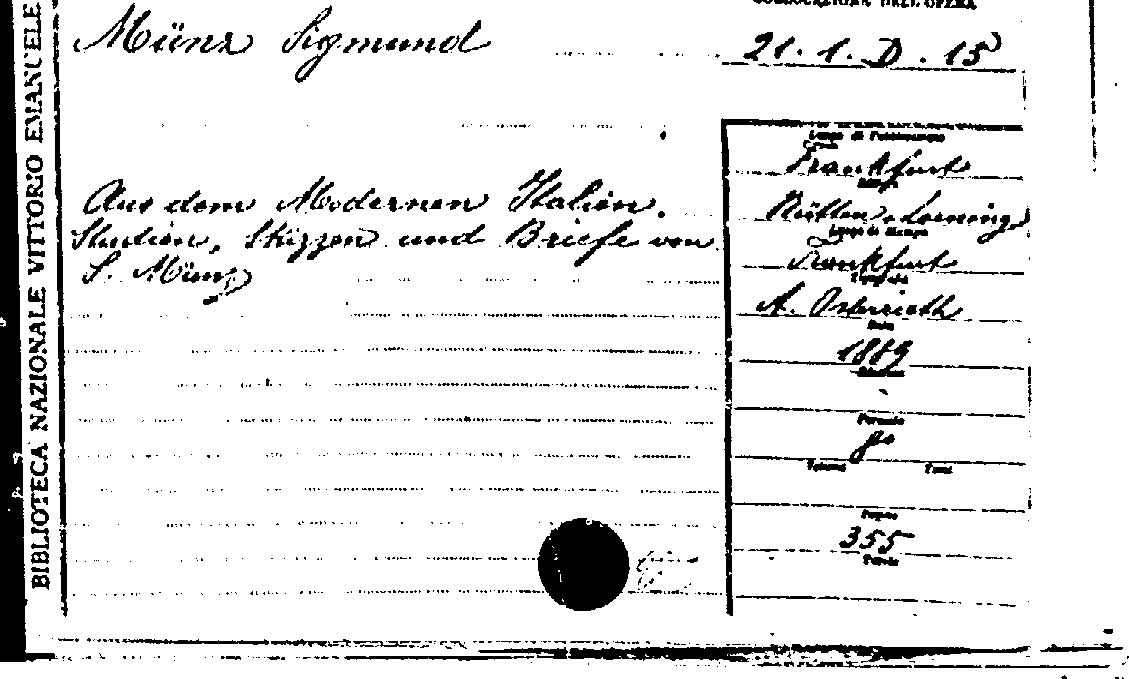 COLLOCAZIONE DELL'OPERA
Münz Sigmund
21.1.D.15
BIBLIOTECA NAZIONALE VITTORIO EMANUELE
Luogo di Pubblicazione
Frankfurt
Aus dem Modernen Italien.
Studien, Skizzen und Briefe von
S. Münz
Rütten u. Loening
Luogo di Stampa
Frankfurt
A. Osterrieth
Data
1889
Formato
8º
Volumi Tomi
Pagine
355
Tavole